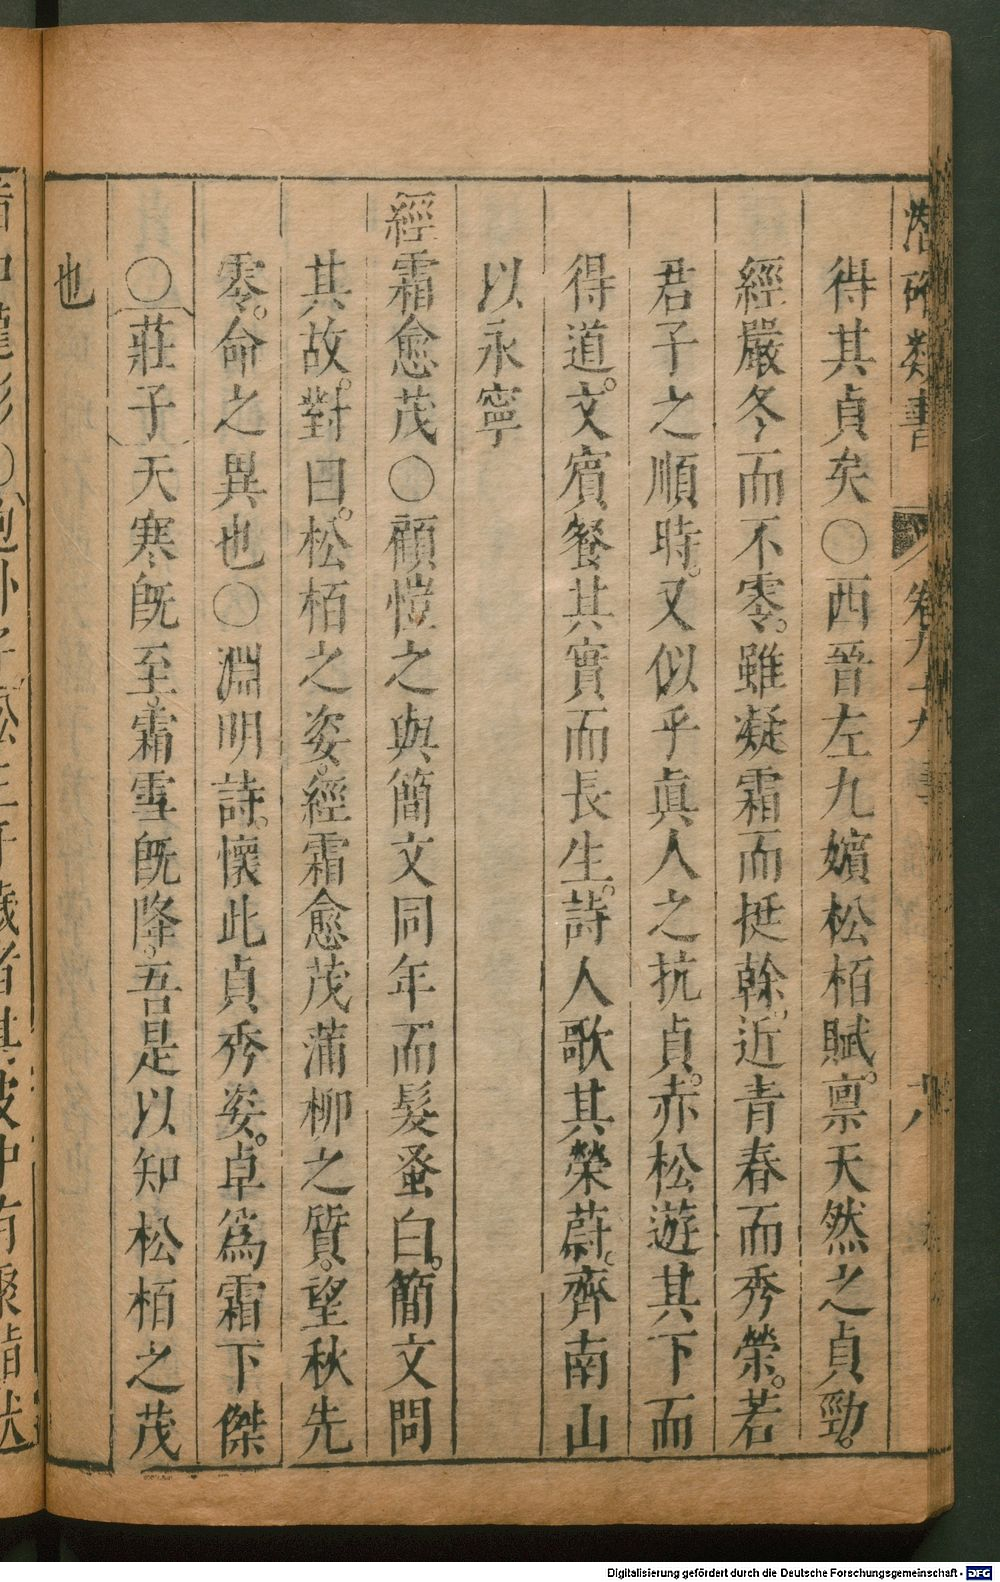 潛確類書 卷九十九 十八
得其貞矣○西晉左九嬪松栢賦。禀天然之貞勁。
經嚴冬而不零。雖凝霜而挺榦。近青春而秀榮。若
君子之順時。又似乎眞人之抗貞。赤松遊其下而
得道。文賓餐其實而長生。詩人歌其榮蔚。齊南山
以永寧
經霜愈茂○顧愷之與簡文同年而髮蚤白。簡文問
其故。對曰。松栢之姿。經霜愈茂蒲柳之質。望秋先
零。命之異也○淵明詩。懷此貞秀姿。卓爲霜下傑
○莊子天寒旣至。霜雪旣降。吾是以知松栢之茂
也
Digitalisierung gefördert durch die Deutsche Forschungsgemeinschaft - DFG